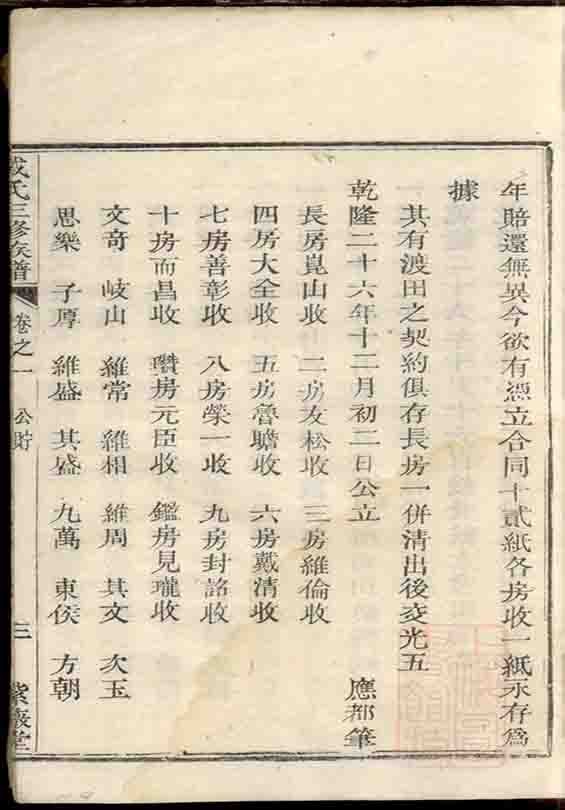 年賠還無異今欲有憑立合同十貳紙各房收一紙永存爲
據
其有渡田之契約俱存長房一併清出後交光五
乾隆二十六年十二月初二日公立 應都筆
長房崑山收 二房友松收 三房維倫收
四房大全收 五房魯瞻收 六房戴清收
七房善彰收 八房榮一收 九房封詻收
十房而昌收 瓚房元臣收 鑑房見瓏收
文奇 岐山 維常 維相 維周 其文 次玉
思樂 子厚 維盛 其盛 九萬 東侯 方朝
成氏三修族譜 卷之一 公貯 三 紫巖堂